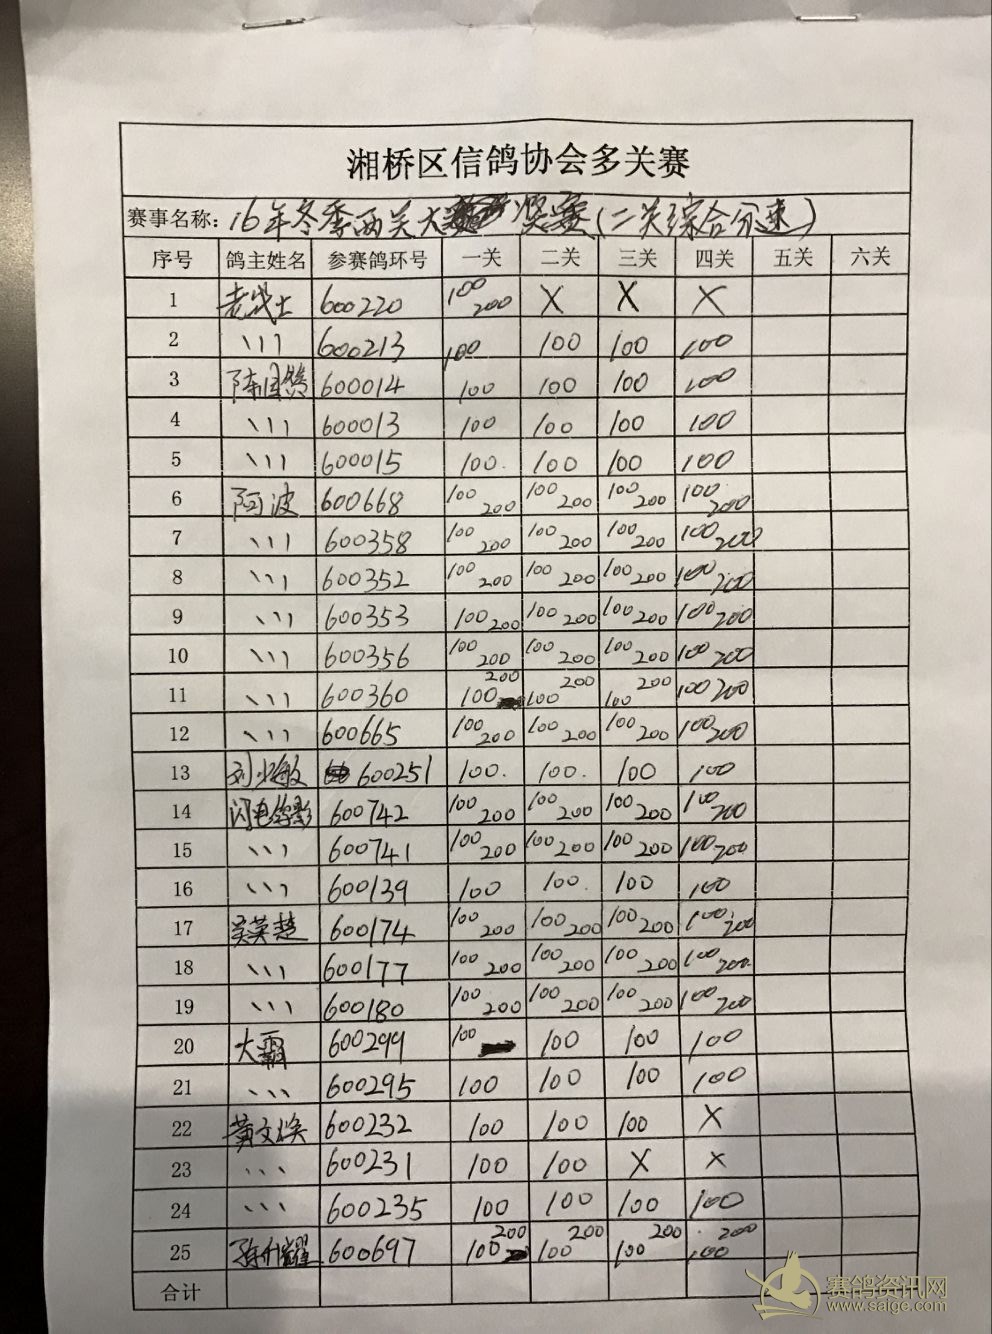 湘桥区信鸽协会多关赛
赛事名称: 16年冬季两关大奖赛(二关综合分速)
序号 鸽主姓名 参赛鸽环号 一关 二关 三关 四关 五关 六关
1 老战士 600220 100 200 X X X
2 \ \ \ 600213 100 100 100 100
3 陈国 600014 100 100 100 100
4 \ \ \ 600013 100 100 100 100
5 \ \ \ 600015 100. 100 100 100
6 阿波 600668 100 200 100 200 100 200 100 200
7 \ \ \ 600358 100 200 100 200 100 200 100 200
8 \ \ \ 600352 100 200 100 200 100 200 100 200
9 \ \ \ 600353 100 200 100 200 100 200 100 200
10 \ \ \ 600356 100 200 100 200 100 200 100 200
11 \ \ \ 600360 100 200 100 200 100 200 100 200
12 \ \ \ 600665 100 200 100 200 100 200 100 200
13 刘少敏 600251 100. 100. 100 100
14 闪电 600742 100 200 100 200 100 200 100 200
15 \ \ \ 600741 100 200 100 200 100 200 100 200
16 \ \ \ 600139 100 100. 100 100
17 吴英楚 600174 100 200 100 200 100 200 100 200
18 \ \ \ 600177 100 200 100 200 100 200 100 200
19 \ \ \ 600180 100 200 100 200 100 200 100 200
20 大霸 600299 100 100 100 100
21 \ \ \ 600295 100 100 100 100
22 黄文焕 600232 100 100 100 X
23 \ \ \ 600231 100 100 X X
24 \ \ \ 600235 100 100 100 100
25 陈耀 600697 100 200 100 200 100 200 100 200
合计
赛鸽资讯网
www.saige.com